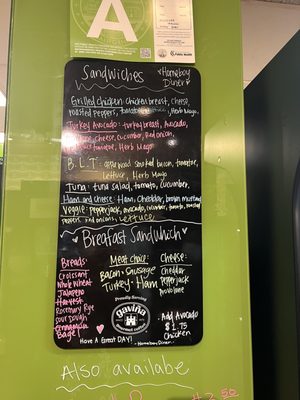 A
Sandwiches
Homeboy
Diner
Grilled chicken: chicken breast, cheese,
roasted peppers, tomato, lettuce, Herb Mayo
Turkey Avocado: turkey breast, Avocado,
cheese, cucumber, Red onion,
tomato, Herb Mayo
B.L.T: applewood smoked bacon, tomatoe,
lettuce, Herb Mayo
Tuna: tuna salad, tomato, cucumber,
Ham and Cheese: Ham, Cheddar, brown mustard
Veggie: pepperjack, avocado, cucumber, tomato, roasted
peppers, Red onions, Lettuce
Breafast Sandwhich
Breads:
Croissant
Whole Wheat
Jalapeño
Harvest
Rosemary Rye
Sour dough
Bagel
Meat choice:
Bacon • Sausage
Turkey • Ham
Cheese:
Cheddar
Pepperjack
Provolone
Proudly Serving
gaviña
gourmet coffee
Add Avocado
$1.75
Chicken
Have A Great DAY!
- Homeboy Diner -
Also availabe
2.50